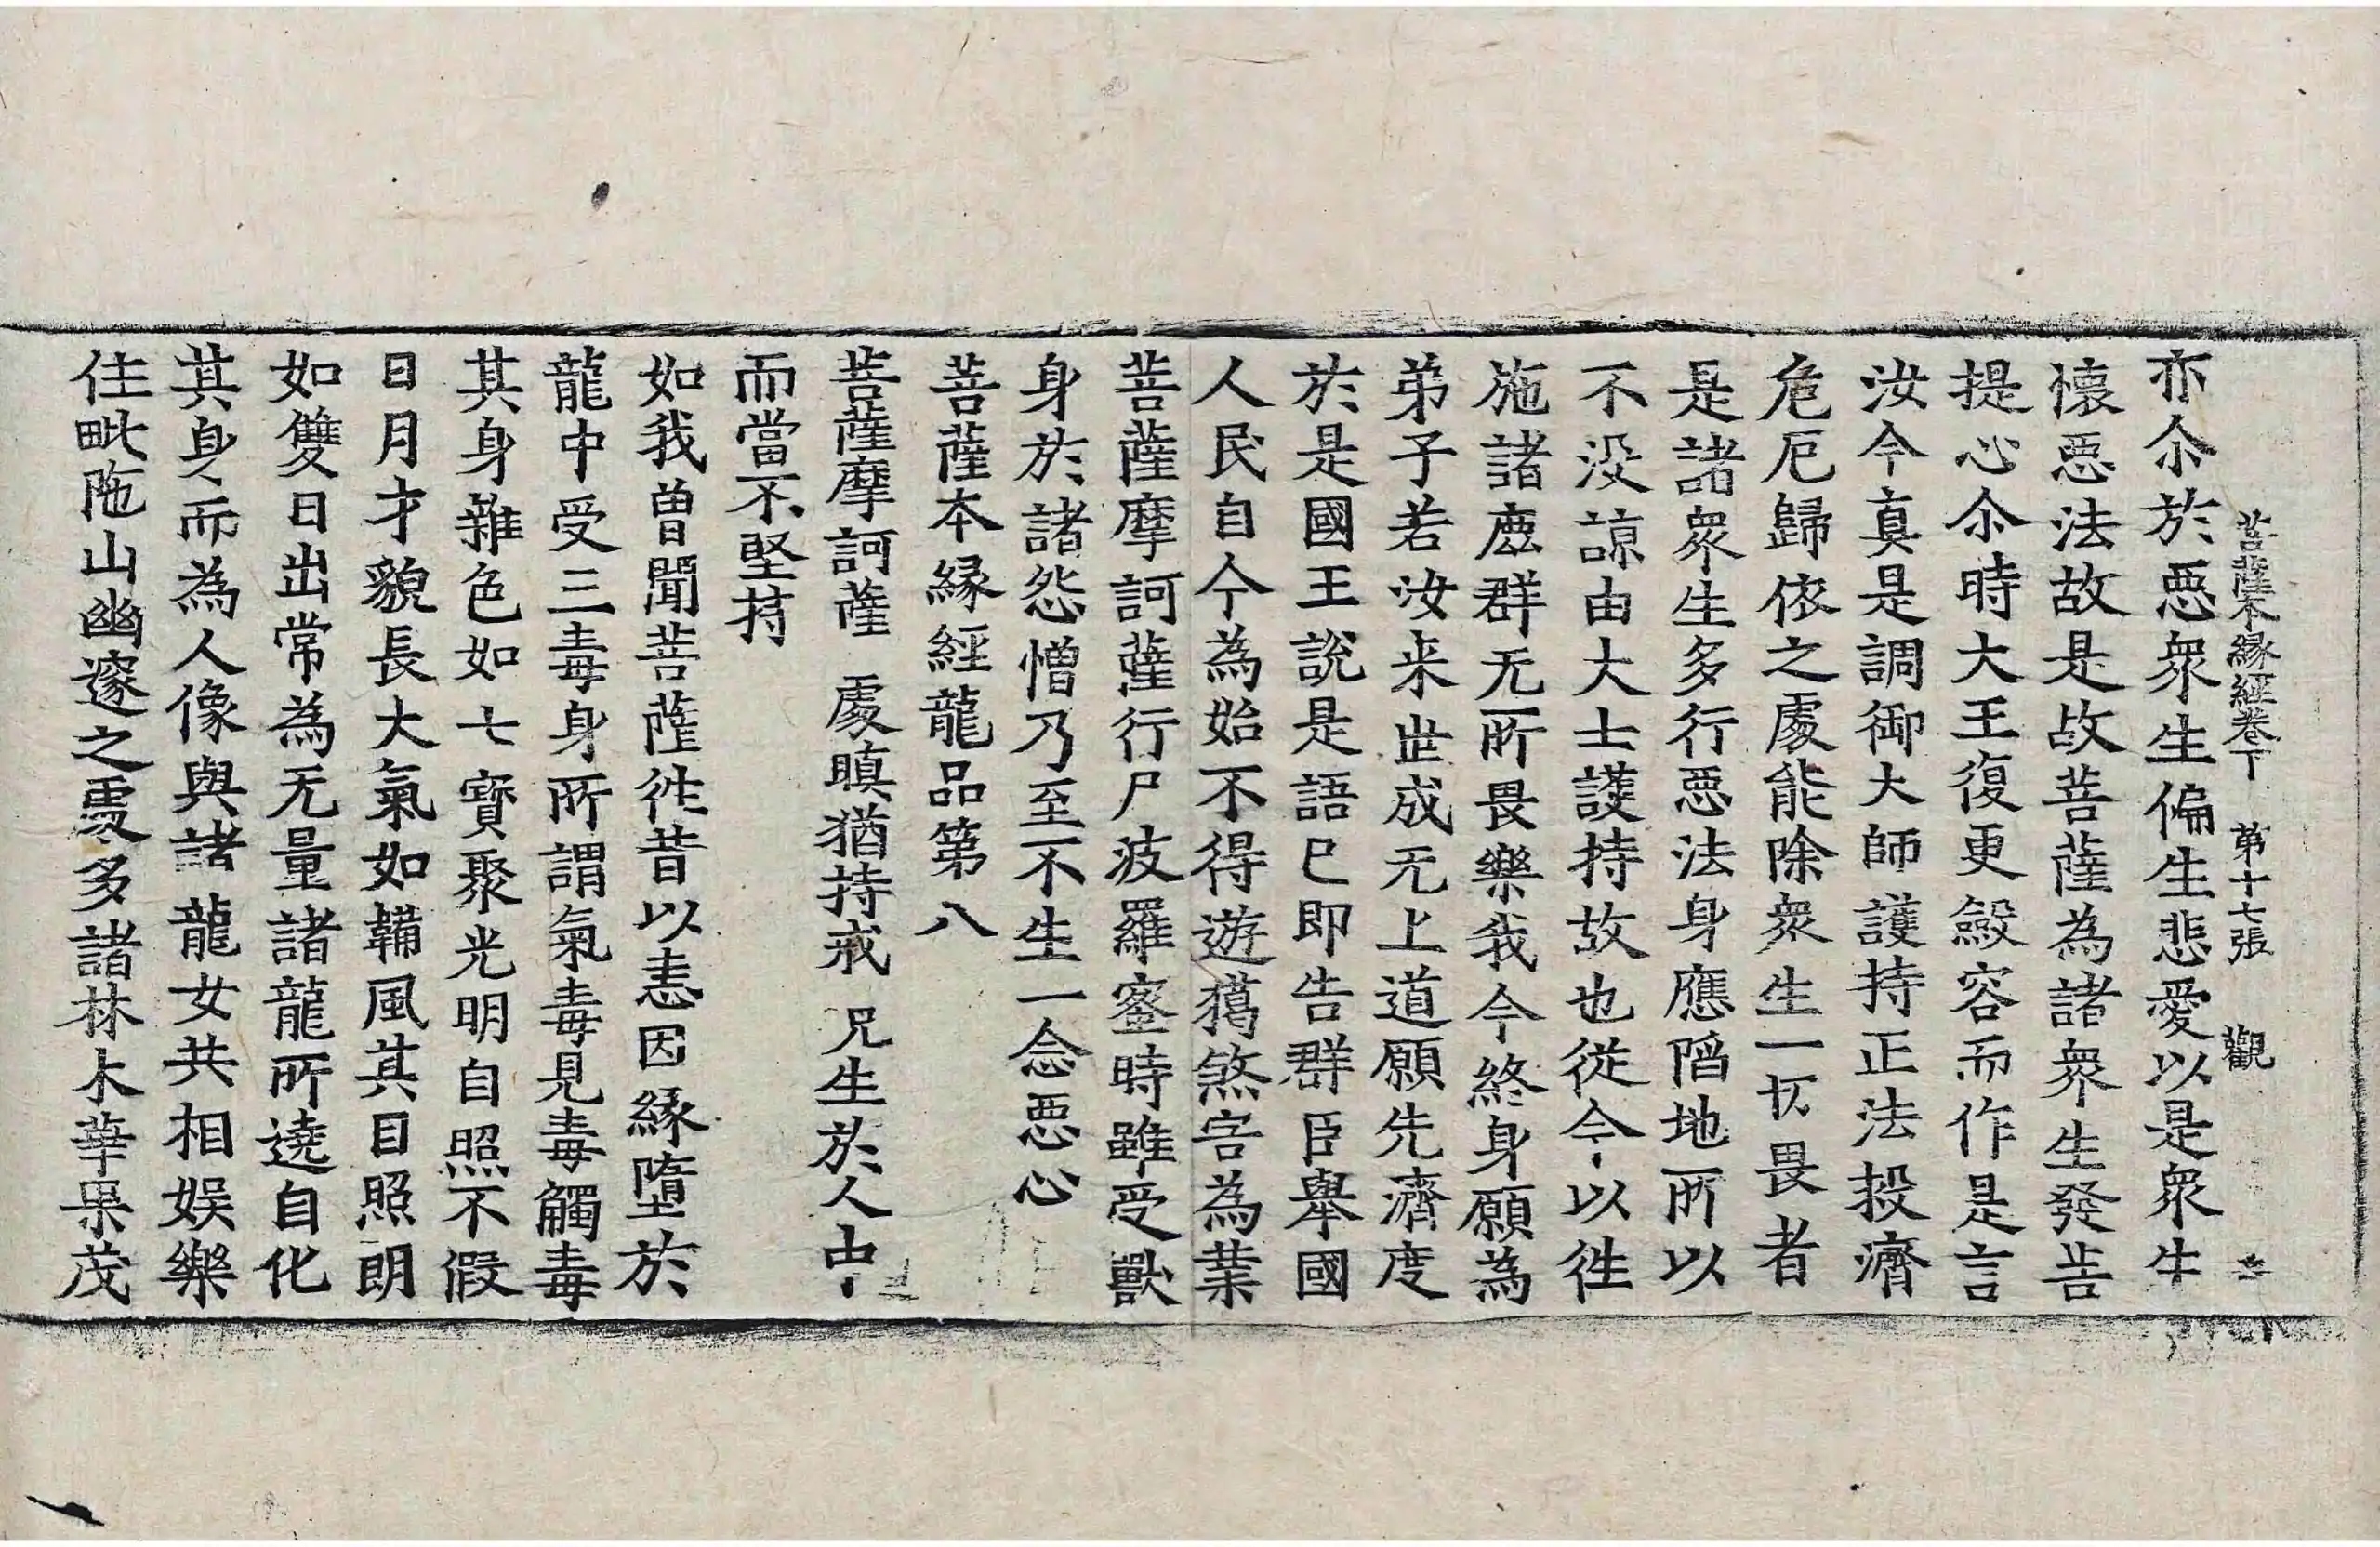 菩薩本縁經卷下　第十七張　觀
亦尒於惡衆生偏生悲愛以是衆生
懷惡法故是故菩薩為諸衆生發菩
提心尒時大王復更斂容而作是言
汝今真是調御大師護持正法投濟
危厄歸依之處能除衆生一切畏者
是諸衆生多行惡法身應陷地所以
不没諒由大士護持故也従今以往
施諸鹿群无所畏樂我今終身願為
弟子若汝来世成无上道願先濟度
於是國王說是語已即告群臣舉國
人民自今為始不得遊獦煞害為業
菩薩摩訶薩行尸波羅蜜時雖受獸
身於諸怨憎乃至不生一念惡心
菩薩本縁經龍品第八
菩薩摩訶薩　處瞋猶持戒　况生於人中
而當不堅持
如我曽聞菩薩往昔以恚因縁墮於
龍中受三毒身所謂氣毒見毒觸毒
其身雜色如七寳聚光明自照不假
日月才貌長大氣如韛風其目照朗
如雙日出常為无量諸龍所遶自化
其身而為人像與諸龍女共相娱樂
住毗陁山幽邃之處多諸林木華果茂